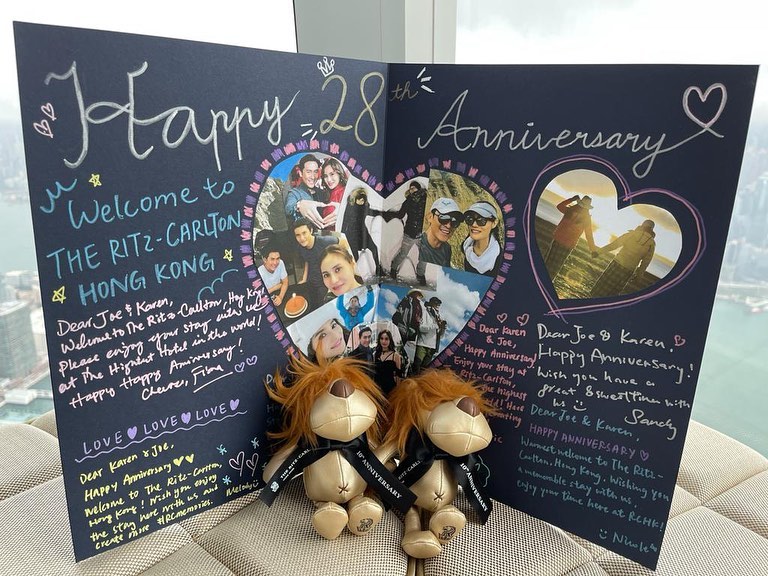 Happy 28th Anniversary
Welcome to
THE RITZ-CARLTON
HONG KONG
Dear Joe & Karen,
Welcome to The Ritz-Carlton, Hong Kong!
Please enjoy your stay with us
at the Highest Hotel in the world!
Happy Happy Anniversary!
Cheers,
LOVE LOVE LOVE
Dear Karen & Joe,
Happy Anniversary
Welcome to The Ritz-Carlton,
Hong Kong! Wish you enjoy
the stay here with us and
create more #RCmemories.
Melody
Dear Karen
& Joe,
Happy Anniversary
Enjoy your stay
Ritz-Carlton,
Highest
Dear Joe & Karen,
Happy Anniversary!
Wish you have a
great & sweet time with
us
Sandy
Dear Joe & Karen,
HAPPY ANNIVERSARY
Warmest welcome to The Ritz-
Carlton, Hong Kong. Wishing you
a memorable stay with us.
Enjoy your time here at RCHK!
Nicole
THE RITZ-CARL
10TH ANNIVERSARY
10TH ANNIVERSARY